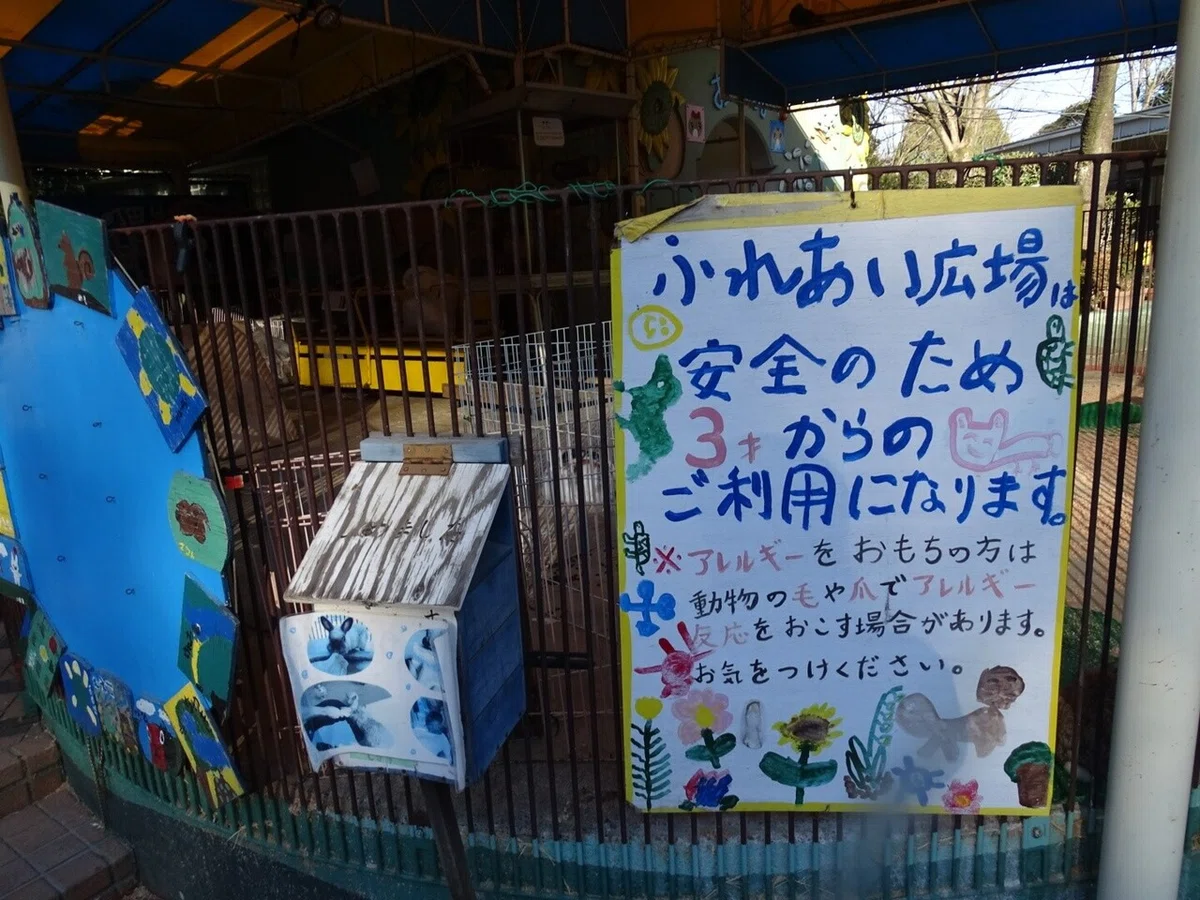 ふれあい広場は
安全のため
3才からの
ご利用になります。
※アレルギーをおもちの方は
動物の毛や爪でアレルギー
反応をおこす場合があります。
お気をつけください。